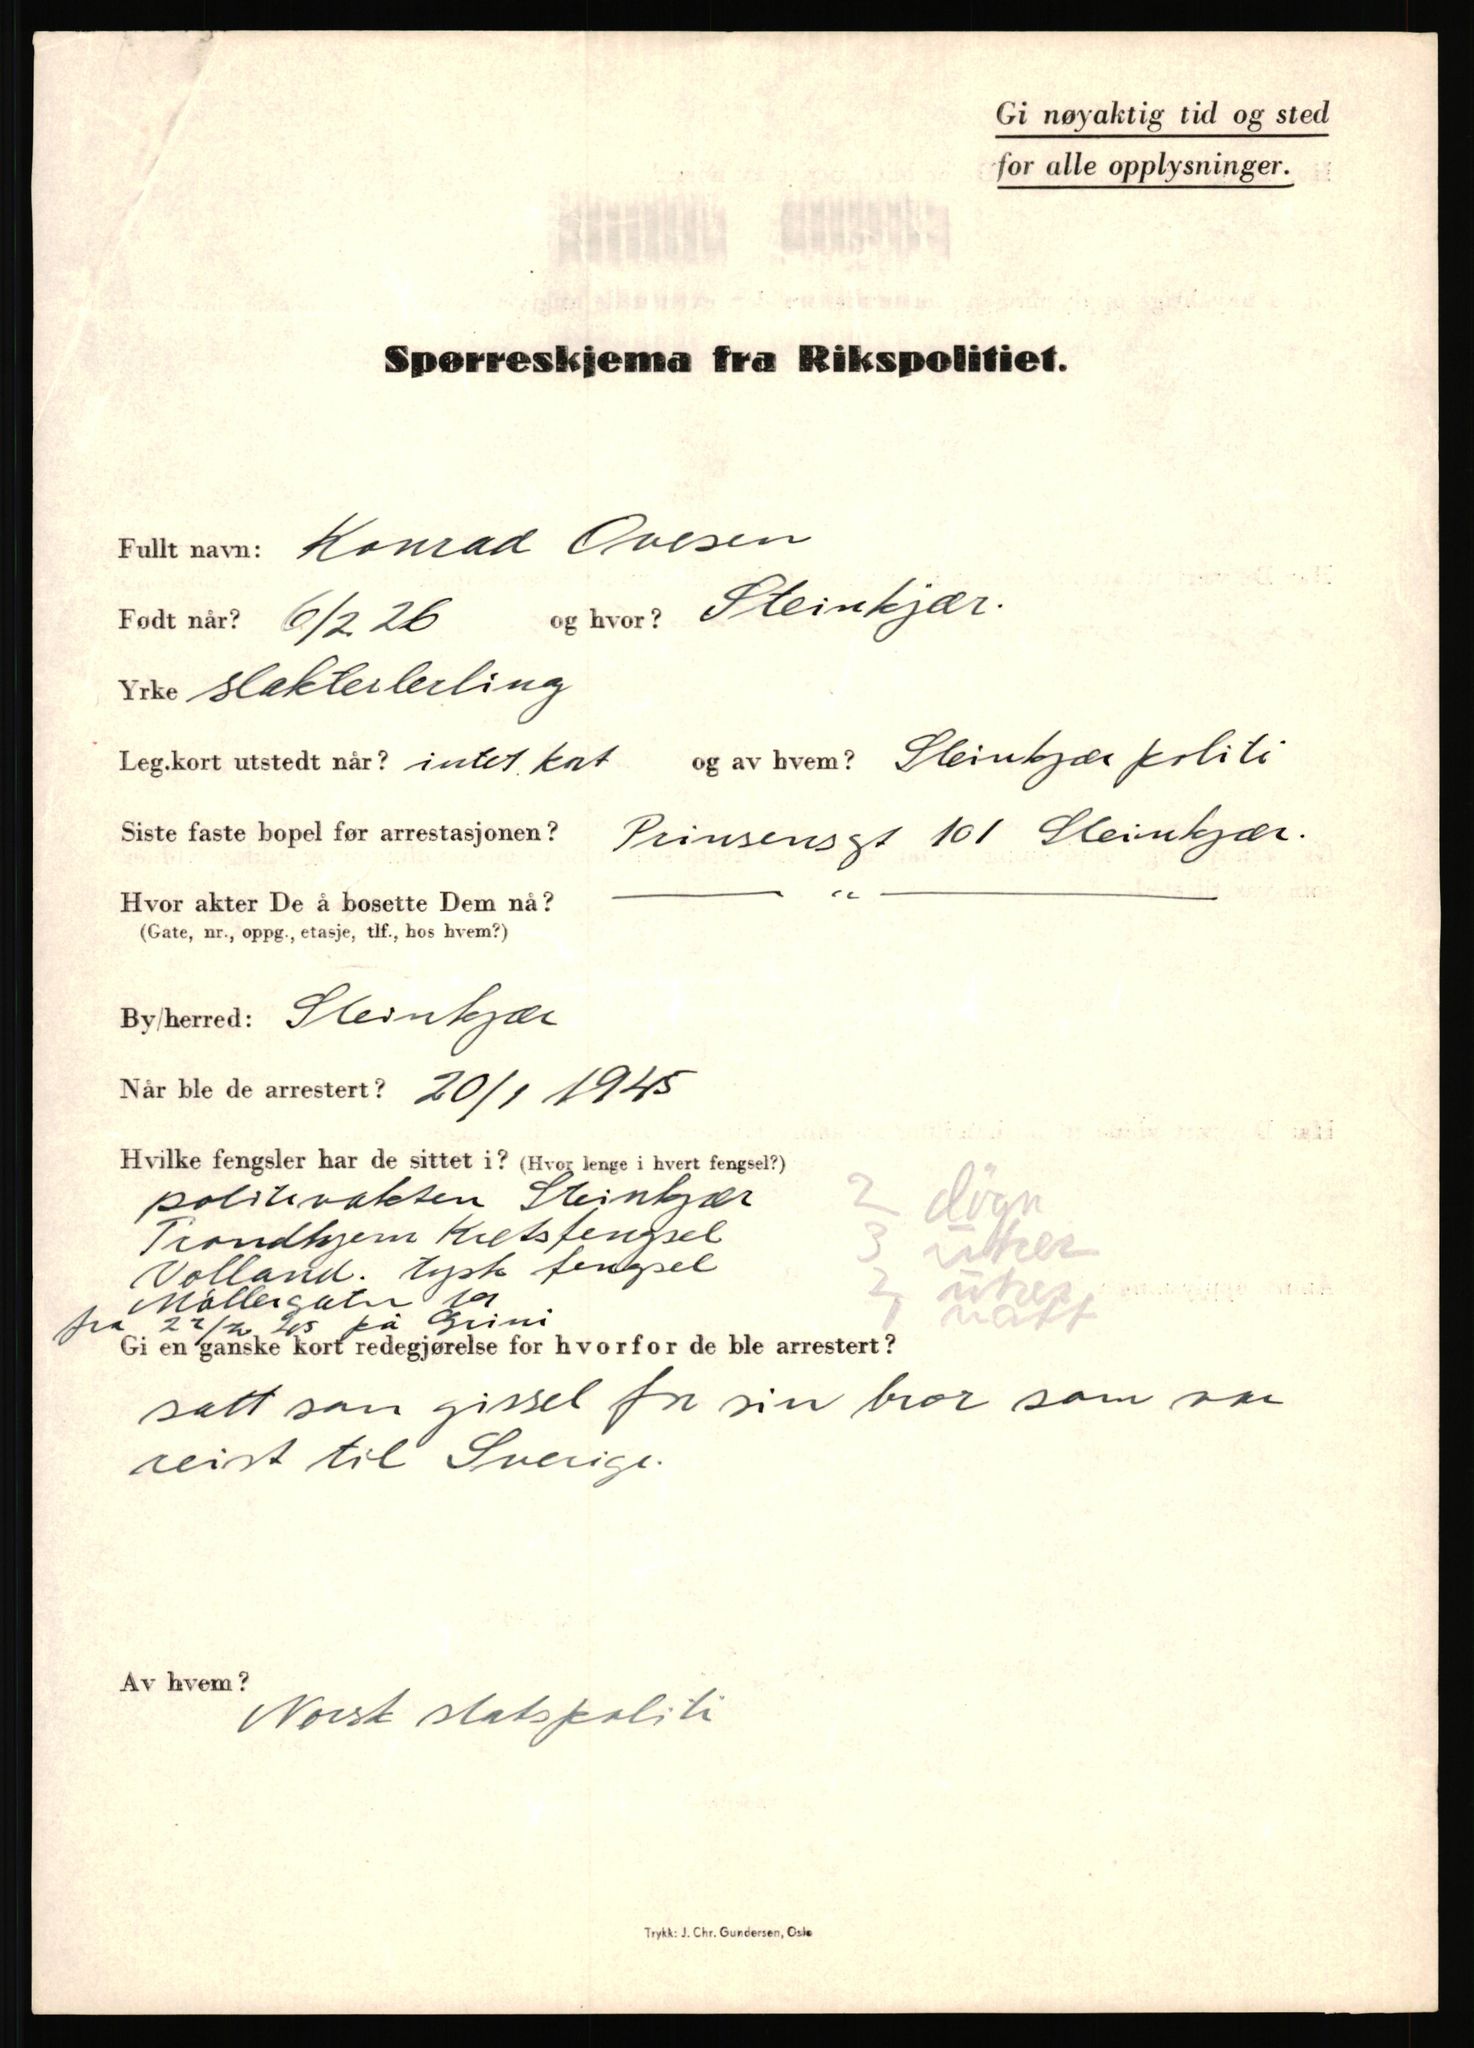 Gi nøyaktig tid og sted
for alle opplysninger.
Spørreskjema fra Rikspolitiet.
Fullt navn: Konrad Ovesen
Født når? 6/2 26 og hvor? Steinkjær.
Yrke slakterlerling
Leg.kort utstedt når? intet kort og av hvem? Steinkjær politi
Siste faste bopel før arrestasjonen? Prinsensgt 101 Steinkjær.
Hvor akter De å bosette Dem nå? — " —
(Gate, nr., oppg., etasje, tlf., hos hvem?)
By/herred: Steinkjær
Når ble de arrestert? 20/1 1945
Hvilke fengsler har de sittet i? (Hvor lenge i hvert fengsel?)
politivakten Steinkjær 2 døgn
Trondhjem Kretsfengsel 3 uker
Volland. tysk fengsel 2 uker
Møllergaten 19 1 natt
fra 45 på Grini
Gi en ganske kort redegjørelse for hvorfor de ble arrestert?
satt som gissel for sin bror som var
reist til Sverige.
Av hvem?
Norsk statspoliti
Trykk: J. Chr. Gundersen, Oslo